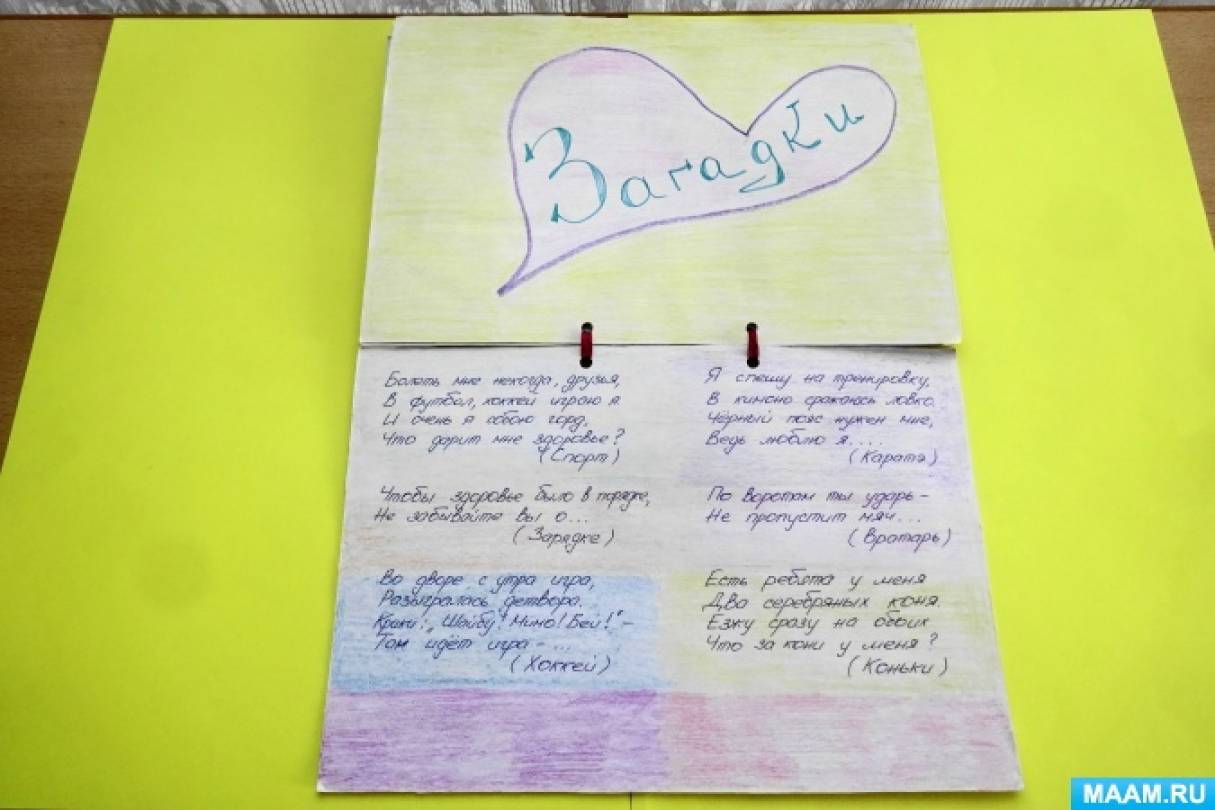 Загадки
Болеть мне некогда, друзья,
В футбол, хоккей играю я
И очень я собою горд,
Что дарит мне здоровье?
(Спорт)
Чтобы здоровье было в порядке,
Не забывайте вы о...
(Зарядке)
Во дворе с утра игра,
Разыгралась детвора.
Крики: „Шайбу! Мимо! Бей!" -
Там идёт игра - ...
(Хоккей)
Я спешу на тренировку,
В кимоно сражаюсь ловко.
Чёрный пояс нужен мне,
Ведь люблю я....
(Каратэ)
По воротам ты ударь -
Не пропустит мяч...
(Вратарь)
Есть ребята у меня
Два серебряных коня.
Езжу сразу на обоих
Что за кони у меня?
(Коньки)
MAAM.RU